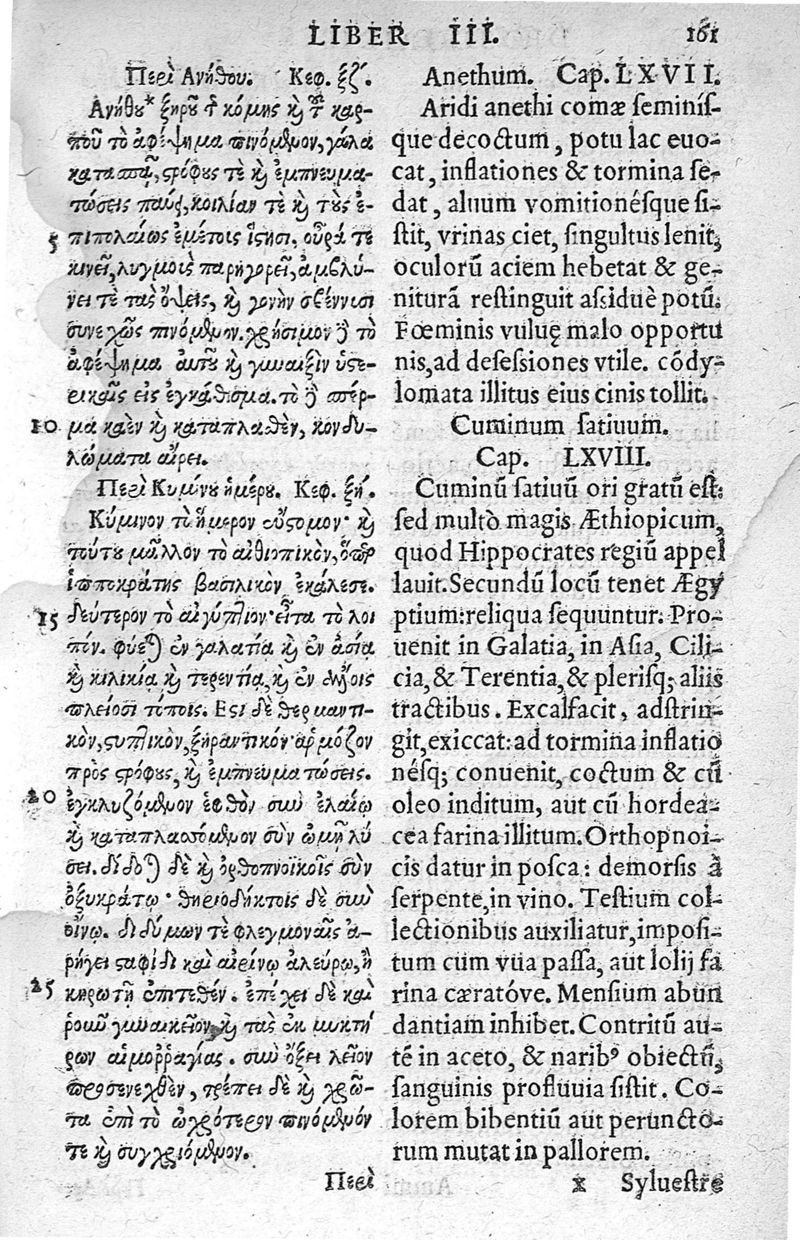 LIBER III. 161
Περὶ Ανήθου. Κεφ. ξζʹ.
Ανήθου* ξηροῦ τ κόμης κὶ τ καρ-
ποῦ τὸ ἀφέψημα πινόμϑμον, γάλα
κατασπᾷ, στρόφους τὲ κὶ ἐμπνευμα-
τώσεις παύς, κοιλίαν τὲ κὶ τοὺς ἐ-
5 πιπολαίως ἐμέτοις ἵστησι. οὖρά τε
κινεῖ, λυγμοῖς παρηγορεῖ, ἀμβλύ-
νει τὲ τὰς ὄψεις, κὶ γονὴν σβέννυσι
συνεχῶς πινόμϑμον. χρήσιμον δ τὸ
ἀφέψημα αὐτοῦ κὶ γυναιξὶν ὑστε-
ρικαῖς εἰς ἐγκάθισμα. τὸ δ σπέρ-
10 μα καὲν κὶ καταπλαϑὲν, κονδυ-
λώματα αἴρει.
Περὶ Κυμίνου ἡμέρου. Κεφ. ξηʹ.
Κύμινον τὸ ἥμερον εὔστομον· κὶ
τούτου μᾶλλον τὸ αἰθιοπικὸν, ὅπερ
ἱπποκράτης βασιλικὸν ἐκάλεσε.
15 δεύτερον τὸ αἰγύπτιον· εἶτα τὸ λοι
πόν. φύε) ἐν γαλατίᾳ κὶ ἐν ἀσίᾳ
κὶ κιλικίᾳ κὶ τερεντίᾳ, κὶ ἐν ἄλλοις
πλείοσι τόποις. Εστὶ δὲ θερμαντι-
κὸν, στυπτικὸν, ξηραντικὸν ἁρμόζον
πρὸς στρόφους, κὶ ἐμπνευματώσεις.
20 ἐγκλυζόμϑμον ἑφθὸν σὺν ἐλαίῳ
κὶ καταπλασσόμϑμον σὺν ὠμῇ λύ
σει. δίδο) δὲ κὶ ὀρθοπνοϊκοῖς σὺν
ὀξυκράτῳ· θηριοδήκτοις δὲ σὺν
οἴνῳ. διδύμων τὲ φλεγμοναῖς ἀ-
ρήγει σταφίδι καὶ αἰρίνῳ ἀλεύρῳ, ἢ
25 κηρωτῇ ἐπιτεθέν. ἐπέχει δὲ καὶ
ῥοῦν γυναικεῖον κὶ τὰς ἐκ μυκτή
ρων αἱμορραγίας. σὺν ὄξει λεῖον
προσενεχθὲν, τρέπει δὲ κὶ χρῶ-
τα ἐπὶ τὸ ὠχρότερον πινόμϑμόν
τε κὶ συγχριόμϑμον.
Περὶ
Anethum. Cap. LXVII.
Aridi anethi comæ ſeminiſ-
que decoctum, potu lac euo-
cat, inflationes & tormina ſe-
dat, aluum vomitionéſque ſi-
ſtit, vrinas ciet, ſingultus lenit,
oculorū aciem hebetat & ge-
niturā reſtinguit aſsiduè potū.
Fœminis vuluę malo opportu
nis, ad deſeſsiones vtile. cōdy-
lomata illitus eius cinis tollit.
Cuminum ſatiuum.
Cap. LXVIII.
Cuminū ſatiuū ori gratū eſt:
ſed multò magis Æthiopicum,
quod Hippocrates regiū appel
lauit. Secundū locū tenet Ægy
ptium: reliqua ſequuntur. Pro-
uenit in Galatia, in Aſia, Cili-
cia, & Terentia, & pleriſq; aliis
tractibus. Excalfacit, adſtrin-
git, exiccat: ad tormina inflatio
néſq; conuenit, coctum & cū
oleo inditum, aut cū hordea-
cea farina illitum. Orthopnoi-
cis datur in poſca: demorſis à
ſerpente, in vino. Teſtium col-
lectionibus auxiliatur, impoſi-
tum cum vua paſſa, aut lolij fa
rina cæratóve. Menſium abun
dantiam inhibet. Contritū au-
tē in aceto, & naribꝰ obiectū,
ſanguinis profluuia ſiſtit. Co-
lorem bibentiū aut peruncto-
rum mutat in pallorem.
x Sylueſtre